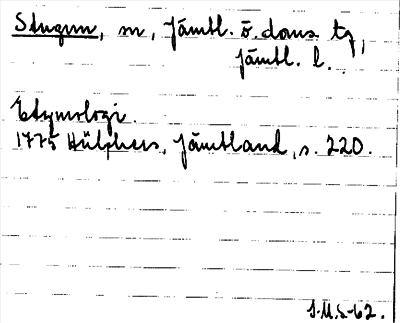 Stugun, sn, Jämtl. ö. doms. tg,
Jämtl. l.
Etymologi.
1775 Hülphers, Jämtland, s. 220.
S.M.S-62.